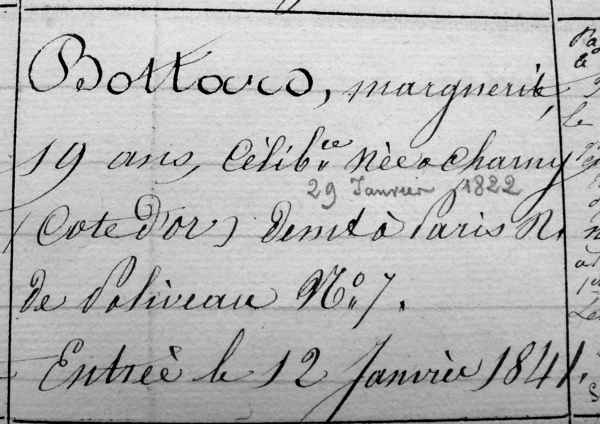 Bottard, marguerite,
19 ans, Célib.re née a Charny
29 Janvier 1822
(Cote d'or) demt à Paris R.
de Poliveau No. 7.
Entrée le 12 Janvier 1841.